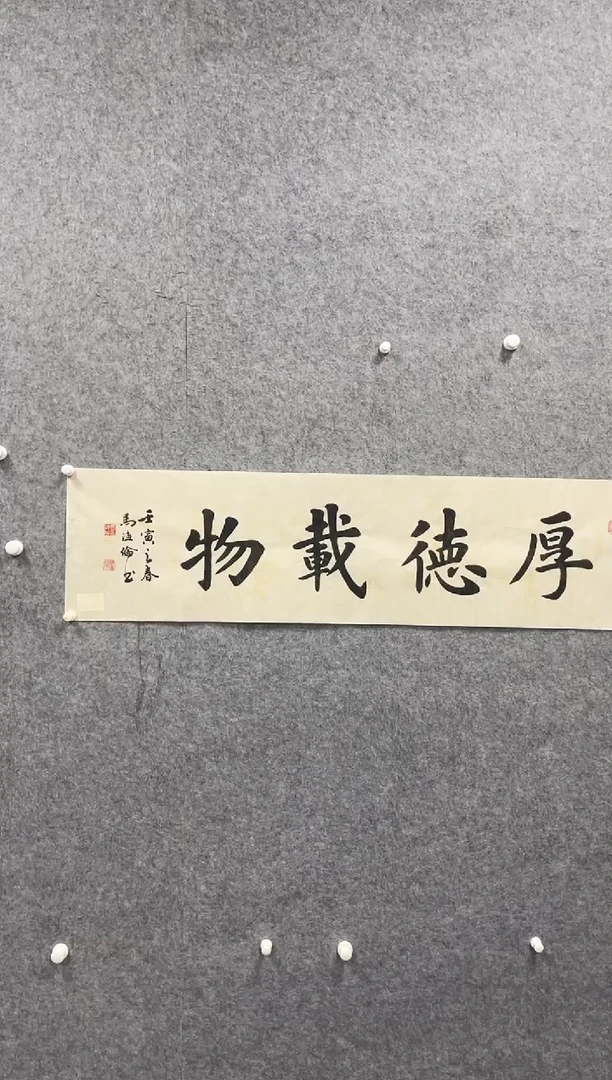 厚德載物
壬寅之春
馬汲倫书